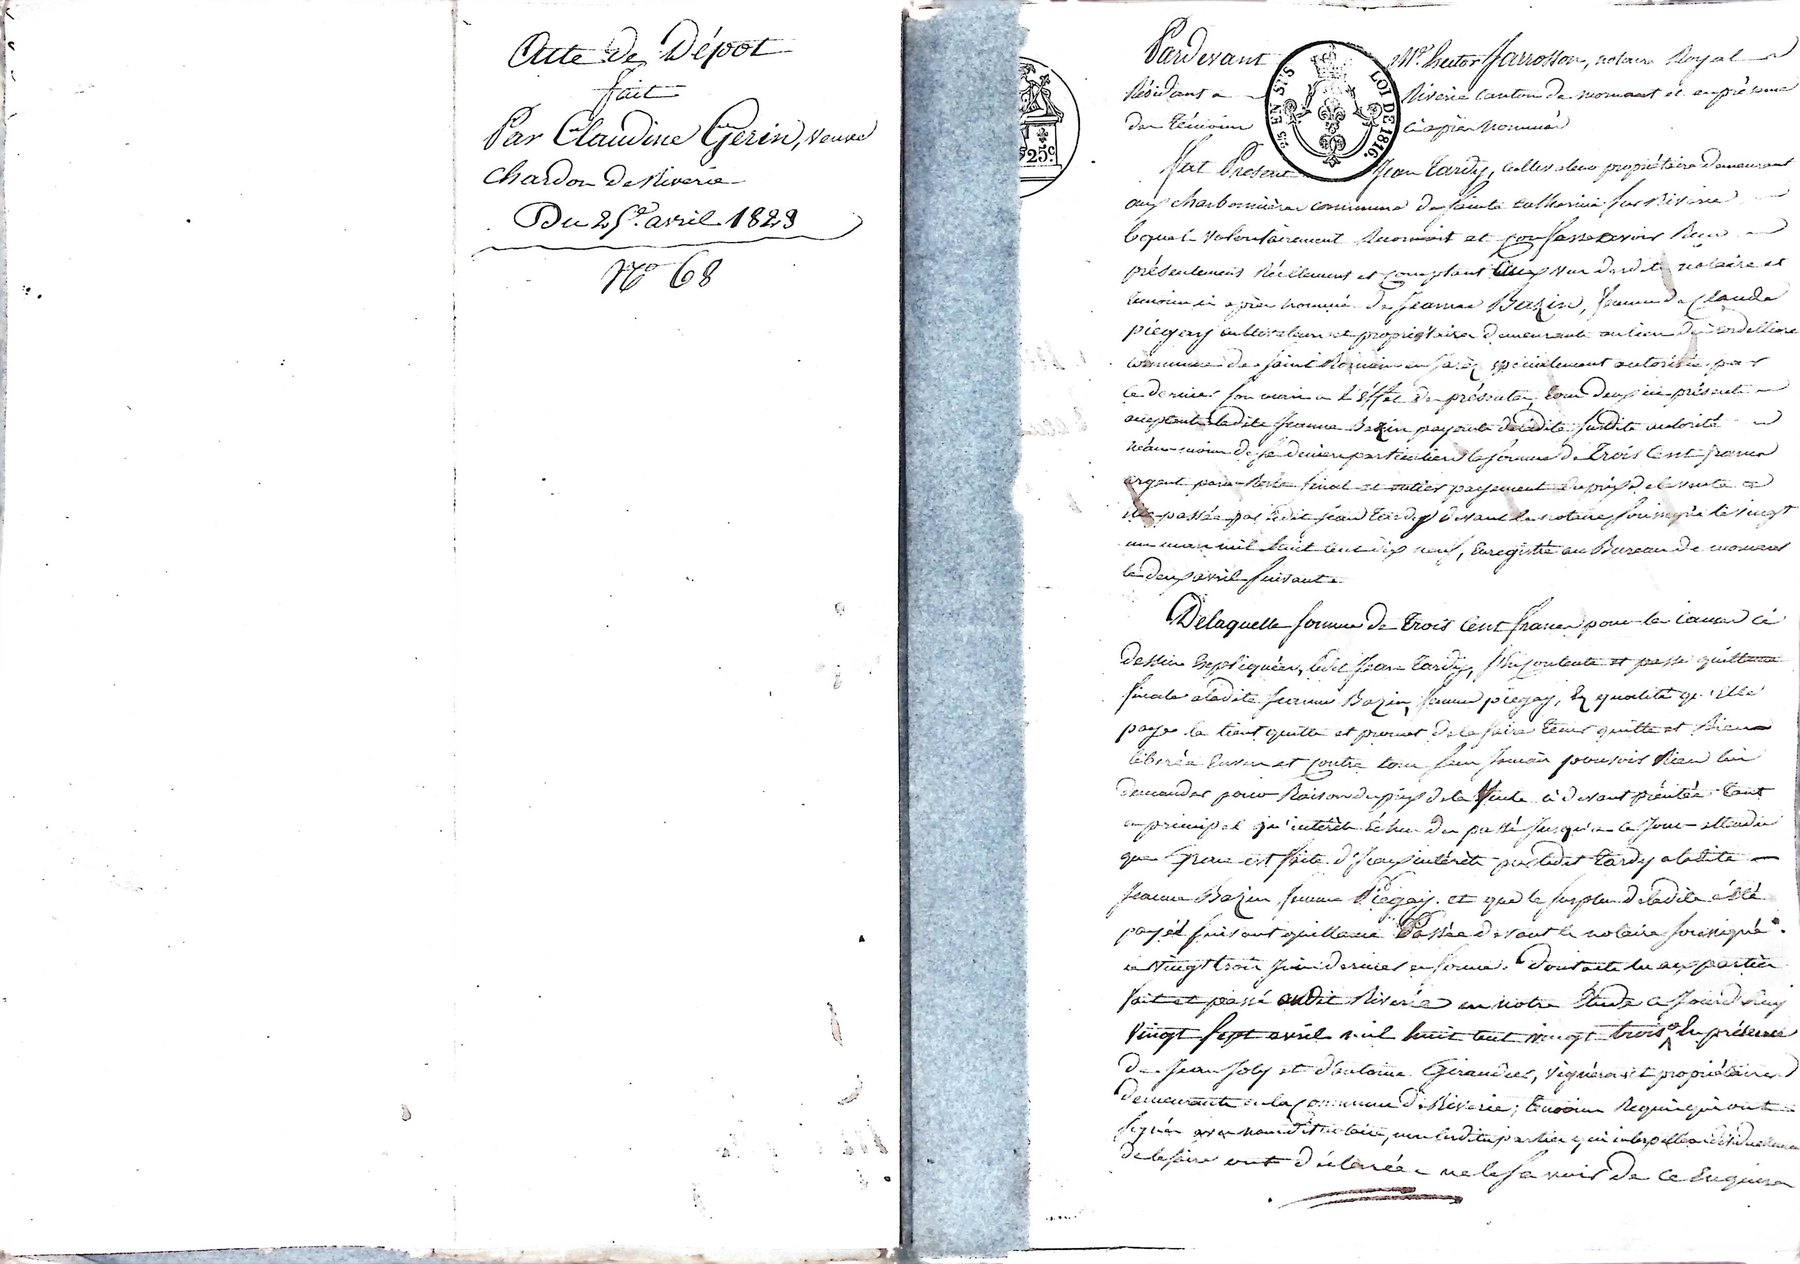 Acte de Dépot
fait
Par Claudine Gerin, veuve
chardon de Riverie
Du 25e. avril 1823
No 68
Pardevant Me. hector Jarrosson, notaire Royal
Résidant a Riverie canton de mornant et en présence
des témoins ci après nommés
25 EN SUS
LOI DE 1816.
25c.
fut Présent Jean Tardy, cultivateur propriétaire demeurant
aux charbonnières commune de sainte catherine sur Riverie
lequel volontairement Reconnait et confesse avoir Recu
présentement Réellement et comptant aux vue dudit notaire et
témoins ci après nommés de Jeanne Bazin, femme de Claude
piegay cultivateurs et propriétaires demeurants au lieu de
commune de saint Romain en jarez spécialement autorisée par
ce dernier son mari a l'éffet des présentes, tous deux ici présents
acceptants ladite Jeanne Bazin payante de ladite susdite autorité
néanmoins de ses deniers particuliers la somme de trois Cent francs
argent pour Reste final et entier payement du prix de la vente a
elle passée par ledit Jean Tardy devant le notaire soussigné le vingt
un mars mil huit cent dix neuf, Enregistré au Bureau de mornant
le deux avril suivant.
De laquelle somme de trois Cent francs pour les causes ci
dessus Expliquées, ledit Jean Tardy, se contente et passe quittance
finale a ladite Jeanne Bazin, femme piegay, En qualité qu'Elle
paye la tient quitte et promet de la faire tenir quitte et Bien
libérée Envers et contre tous sans Jamais pouvoir Rien lui
demander pour Raison du prix de la Vente ci devant précitée tant
en principal qu'intérêts échus du passé Jusqu'a ce Jour attendu
que Grace est faite d'Iceux intérêts par ledit Tardy a ladite
Jeanne Bazin femme Piegay. et que le surplus de ladite a été
payé suivant quittance Passée devant le notaire soussigné
le vingt trois Juin dernier en forme. Dont acte lu aux parties
fait et passé audit Riverie en notre Etude ce Jourd'huy
vingt sept avril mil huit cent vingt trois. En présence
de Jean Joly et d'antoine Giraudier, vignerons et propriétaires
demeurants en la commune de Riverie; témoins Requis qui ont
signés avec nous dit notaire, non lesdites parties qui interpellées individuellement
de le faire ont déclarées ne le savoir de ce Enquises